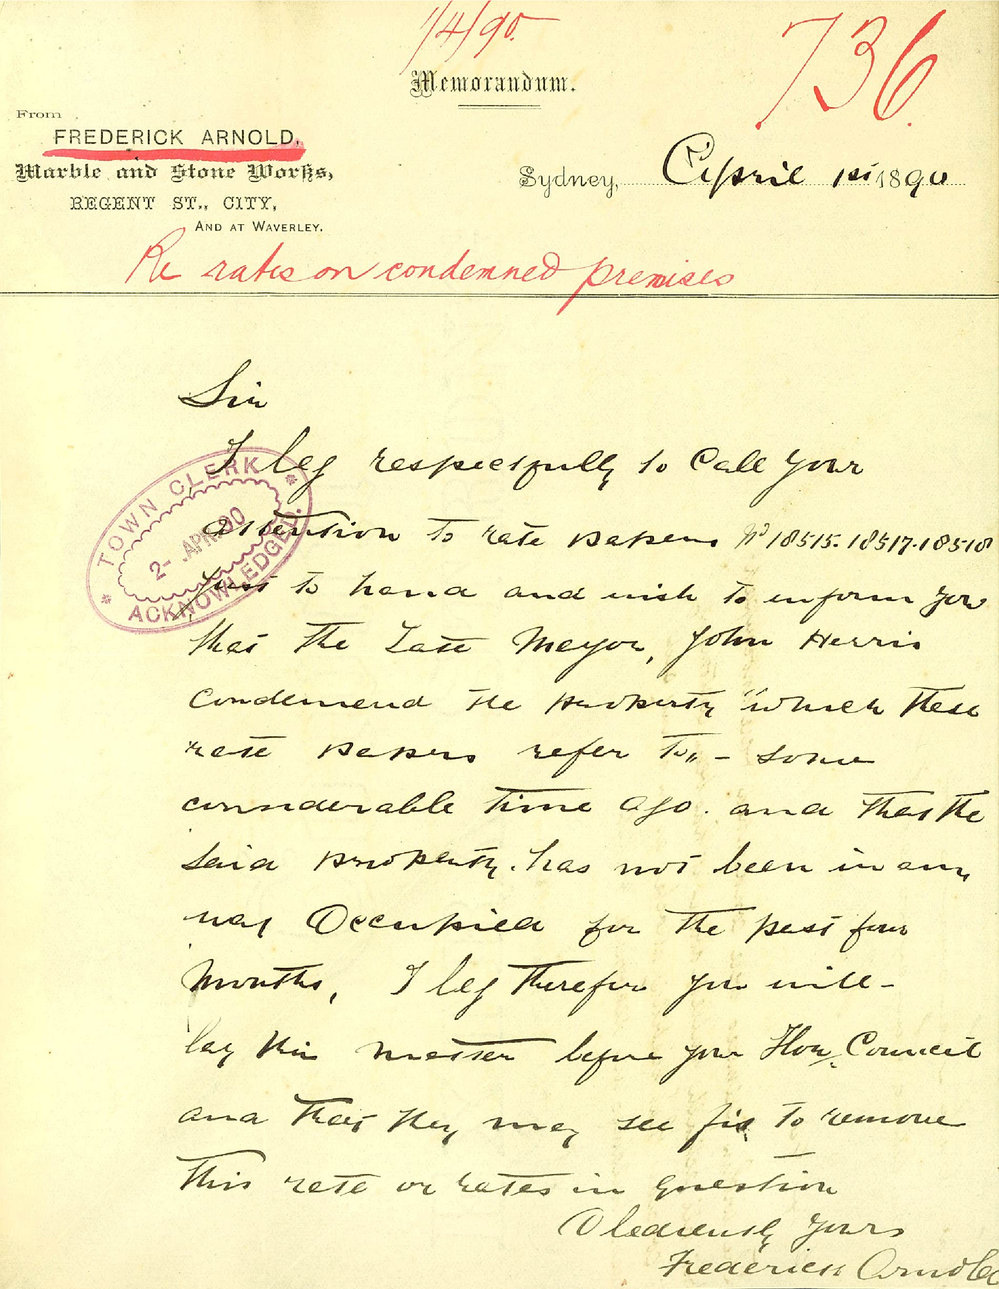 1/4/90
736
Memorandum.
From
FREDERICK ARNOLD,
Marble and Stone Works,
REGENT ST., CITY,
AND AT WAVERLEY.
Sydney, April 1st 1890
Re rates on condemned premises
Sir
I beg respectfully to Call Your
attention to rate papers Nº 18515.18517.18518
Just to hand and wish to inform you
that the Late Mayor, John Harris
condemend the property "which these
rate papers refer to" - some
considerable time ago. and that the
said property. has not been in any
way Occupied for the past four
Months, I beg therefor you will-
lay this matter before your Hon. Council
and that they may see fit to remove
this rate or rates in question
Obediently Yours
Frederick Arnold
TOWN CLERK
2- APR. 90
ACKNOWLEDGED.